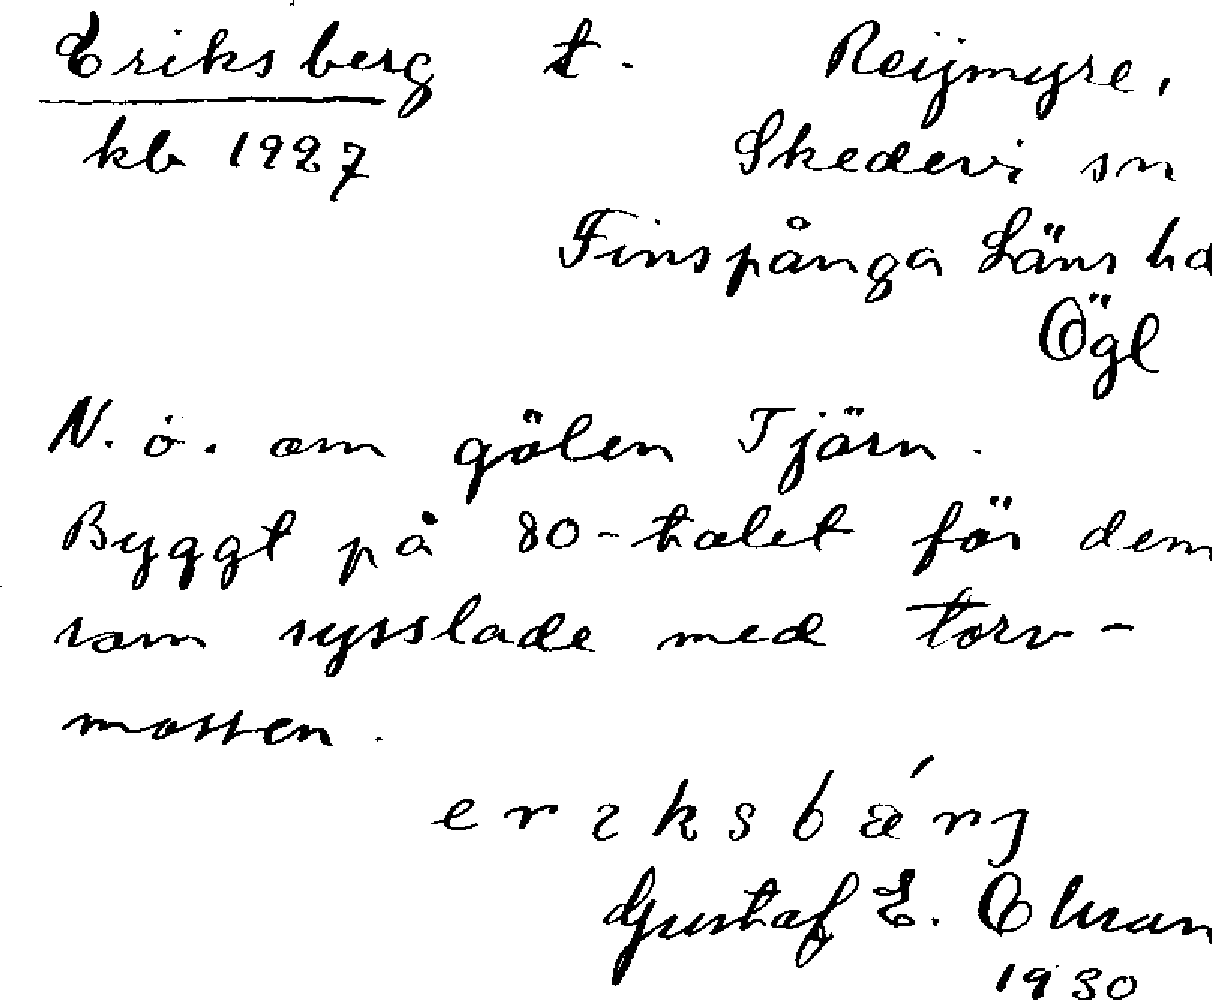 Eriksberg t. Reijmyre,
kb 1927 Skedevi sn
Finspånga Läns hd
Ögl
N. ö. om gölen Tjärn.
Byggt på 80-talet för dem
som sysslade med torv-
mossen.
Gustaf E.
1930